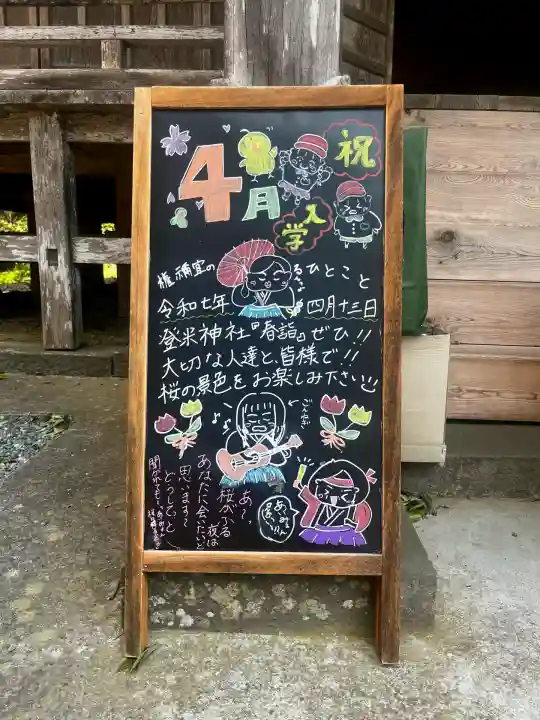 4月
祝
入学
権禰宜の
ひとこと
令和七年
四月十三日
登米神社『春詣』ぜひ!!
大切な人達と、皆様で!!
桜の景色をお楽しみ下さい
ごんねぎ
あ〜、
桜がふる
夜は
あなたに会いたいと
思います〜
どうしてと
聞かれても〜